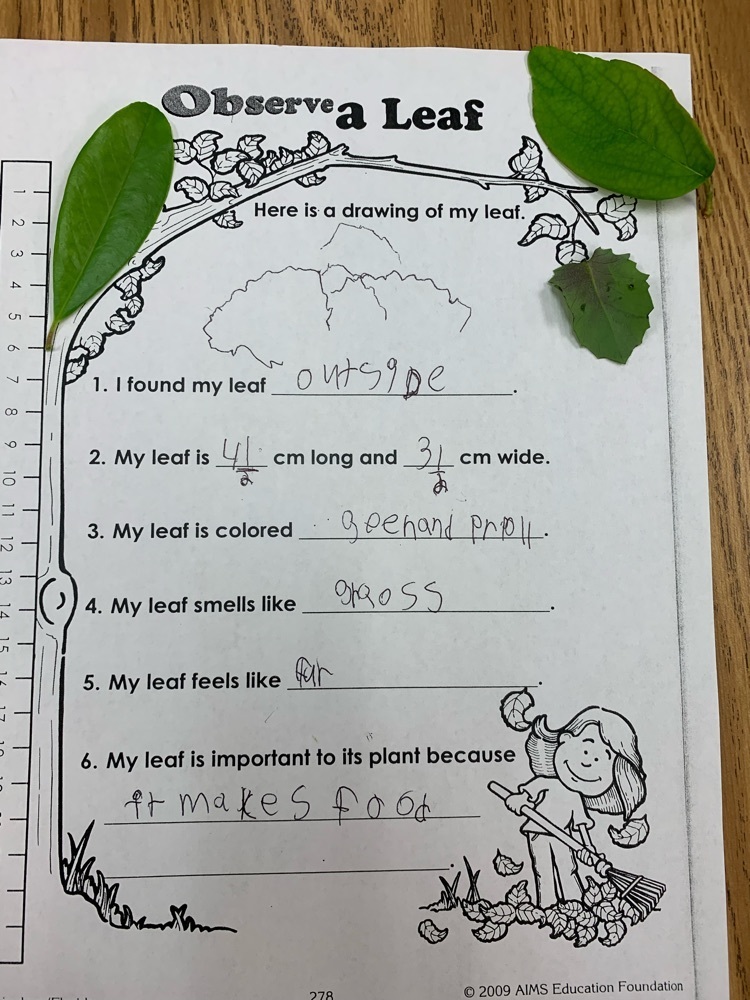 Observe a Leaf
Here is a drawing of my leaf.
1. I found my leaf outside.
2. My leaf is 4 1/2 cm long and 3 1/2 cm wide.
3. My leaf is colored geenand prpll.
4. My leaf smells like graoss.
5. My leaf feels like far.
6. My leaf is important to its plant because
it makes food
.
1
2
3
4
5
6
7
8
9
10
11
12
13
14
15
16
17
278
© 2009 AIMS Education Foundation